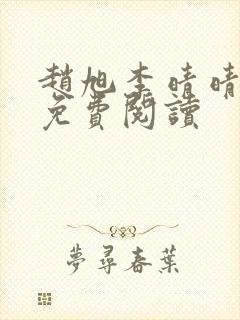 趙旭李晴晴
免費閱讀
夢尋春葉